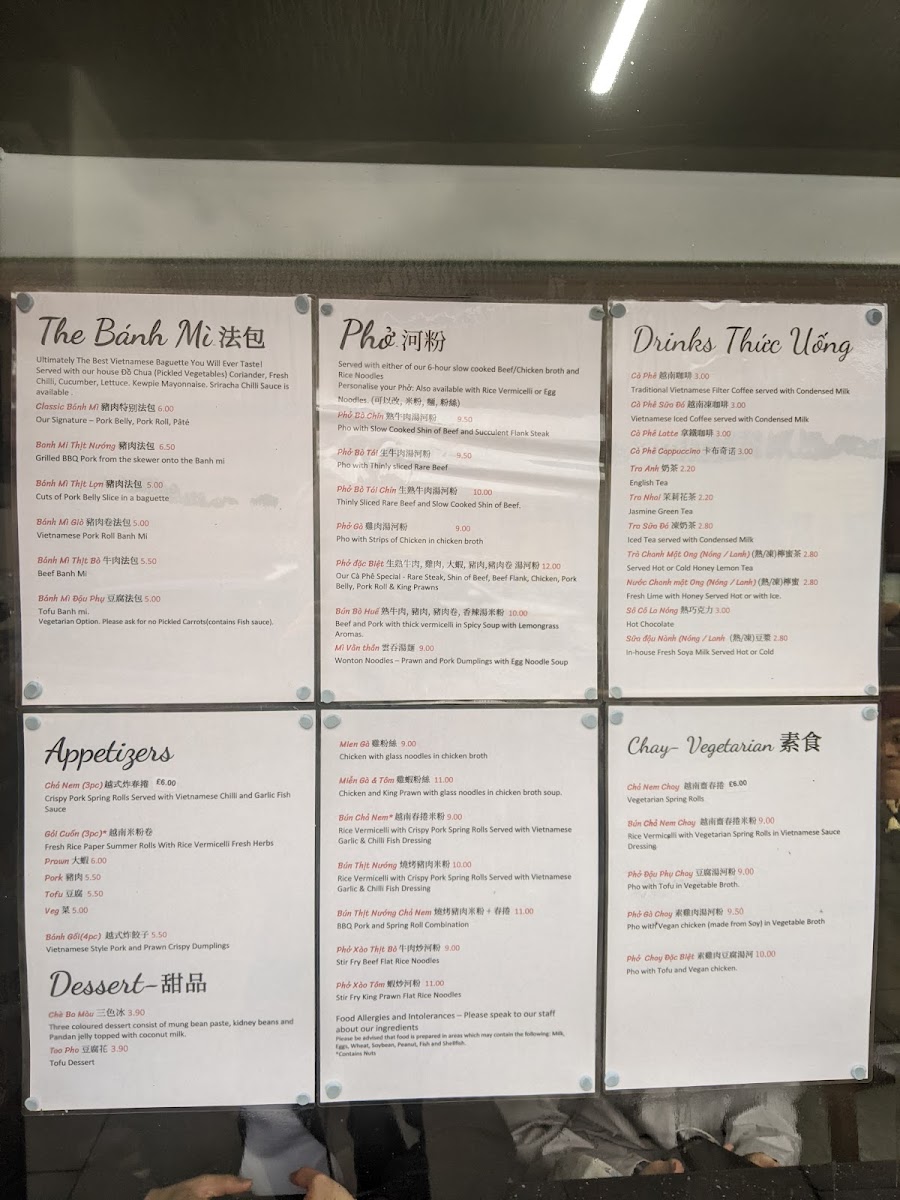 The Bánh Mì 法包
Ultimately The Best Vietnamese Baguette You Will Ever Taste!
Served with our house Đồ Chua (Pickled Vegetables) Coriander, Fresh
Chilli, Cucumber, Lettuce. Kewpie Mayonnaise. Sriracha Chilli Sauce is
available .
Classic Bánh Mì 豬肉特别法包 6.00
Our Signature – Pork Belly, Pork Roll, Pâté
Banh Mì Thịt Nướng 豬肉法包 6.50
Grilled BBQ Pork from the skewer onto the Banh mi
Bánh Mì Thịt Lợn 豬肉法包 5.00
Cuts of Pork Belly Slice in a baguette
Bánh Mì Giò 豬肉卷法包 5.00
Vietnamese Pork Roll Banh Mi
Bánh Mì Thịt Bò 牛肉法包 5.50
Beef Banh Mi
Bánh Mì Đậu Phụ 豆腐法包 5.00
Tofu Banh mi.
Vegetarian Option. Please ask for no Pickled Carrots(contains Fish sauce).
Phở 河粉
Served with either of our 6-hour slow cooked Beef/Chicken broth and
Rice Noodles
Personalise your Phở: Also available with Rice Vermicelli or Egg
Noodles. (可以改, 米粉, 麵, 粉絲)
Phở Bò Chín 熟牛肉湯河粉 9.50
Pho with Slow Cooked Shin of Beef and Succulent Flank Steak
Phở Bò Tái 生牛肉湯河粉 9.50
Pho with Thinly sliced Rare Beef
Phở Bò Tái Chín 生熟牛肉湯河粉 10.00
Thinly Sliced Rare Beef and Slow Cooked Shin of Beef.
Phở Gà 雞肉湯河粉 9.00
Pho with Strips of Chicken in chicken broth
Phở đặc Biệt 生熟牛肉, 雞肉, 大蝦, 豬肉,豬肉卷 湯河粉 12.00
Our Cà Phê Special - Rare Steak, Shin of Beef, Beef Flank, Chicken, Pork
Belly, Pork Roll & King Prawns
Bún Bò Huế 熟牛肉, 豬肉, 豬肉卷, 香辣湯米粉 10.00
Beef and Pork with thick vermicelli in Spicy Soup with Lemongrass
Aromas.
Mì Vằn thắn 雲吞湯麵 9.00
Wonton Noodles – Prawn and Pork Dumplings with Egg Noodle Soup
Drinks Thức Uống
Cà Phê 越南咖啡 3.00
Traditional Vietnamese Filter Coffee served with Condensed Milk
Cà Phê Sữa Đá 越南凍咖啡 3.00
Vietnamese Iced Coffee served with Condensed Milk
Cà Phê Latte 拿鐵咖啡 3.00
Cà Phê Cappuccino 卡布奇诺 3.00
Tra Anh 奶茶 2.20
English Tea
Tra Nhai 茉莉花茶 2.20
Jasmine Green Tea
Tra Sữa Đá 凍奶茶 2.80
Iced Tea served with Condensed Milk
Trà Chanh Mật Ong (Nóng / Lanh) (熱/凍)檸蜜茶 2.80
Served Hot or Cold Honey Lemon Tea
Nước Chanh mật Ong (Nóng / Lanh) (熱/凍)檸蜜 2.80
Fresh Lime with Honey Served Hot or with Ice.
Sô Cô La Nóng 熱巧克力 3.00
Hot Chocolate
Sữa đậu Nành (Nóng / Lanh (熱/凍)豆漿 2.80
In-house Fresh Soya Milk Served Hot or Cold
Appetizers
Chả Nem (3pc) 越式炸春捲 £6.00
Crispy Pork Spring Rolls Served with Vietnamese Chilli and Garlic Fish
Sauce
Gỏi Cuốn (3pc)* 越南米粉卷
Fresh Rice Paper Summer Rolls With Rice Vermicelli Fresh Herbs
Prawn 大蝦 6.00
Pork 豬肉 5.50
Tofu 豆腐 5.50
Veg 菜 5.00
Bánh Gối(4pc) 越式炸餃子 5.50
Vietnamese Style Pork and Prawn Crispy Dumplings
Dessert-甜品
Chè Ba Màu 三色冰 3.90
Three coloured dessert consist of mung bean paste, kidney beans and
Pandan jelly topped with coconut milk.
Tao Pho 豆腐花 3.90
Tofu Dessert
Mien Gà 雞粉絲 9.00
Chicken with glass noodles in chicken broth
Miến Gà & Tôm 雞蝦粉絲 11.00
Chicken and King Prawn with glass noodles in chicken broth soup.
Bún Chả Nem* 越南春捲米粉 9.00
Rice Vermicelli with Crispy Pork Spring Rolls Served with Vietnamese
Garlic & Chilli Fish Dressing
Bún Thịt Nướng 燒烤豬肉米粉 10.00
Rice Vermicelli with Crispy Pork Spring Rolls Served with Vietnamese
Garlic & Chilli Fish Dressing
Bún Thịt Nướng Chả Nem 燒烤豬肉米粉 + 春捲 11.00
BBQ Pork and Spring Roll Combination
Phở Xào Thịt Bò 牛肉炒河粉 9.00
Stir Fry Beef Flat Rice Noodles
Phở Xào Tôm 蝦炒河粉 11.00
Stir Fry King Prawn Flat Rice Noodles
Food Allergies and Intolerances – Please speak to our staff
about our ingredients
Please be advised that food is prepared in areas which may contain the following: Milk,
Eggs, Wheat, Soybean, Peanut, Fish and Shellfish.
*Contains Nuts
Chay- Vegetarian 素食
Chả Nem Chay 越南齋春捲 £6.00
Vegetarian Spring Rolls
Bún Chả Nem Chay 越南齋春捲米粉 9.00
Rice Vermicelli with Vegetarian Spring Rolls in Vietnamese Sauce
Dressing
Phở Đậu Phụ Chay 豆腐湯河粉 9.00
Pho with Tofu in Vegetable Broth.
Phở Gà Chay 素雞肉湯河粉 9.50
Pho with Vegan chicken (made from Soy) in Vegetable Broth
Phở Chay Đặc Biệt 素雞肉豆腐湯河 10.00
Pho with Tofu and Vegan chicken.